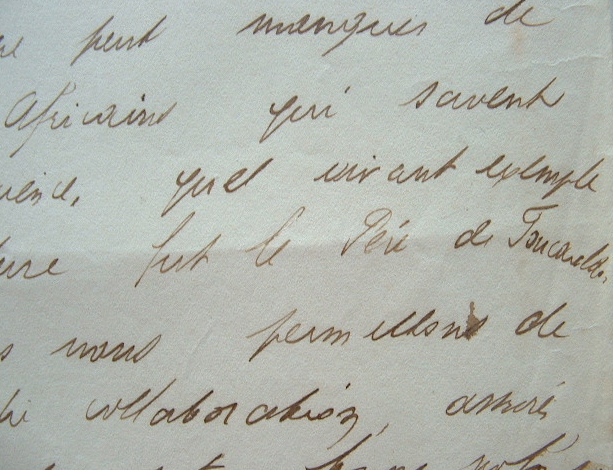 ne peut manquer de
Africains qui savent
quel vivant exemple
fut le Père de Foucauld.
s nous permettons de
collaboration, assurés